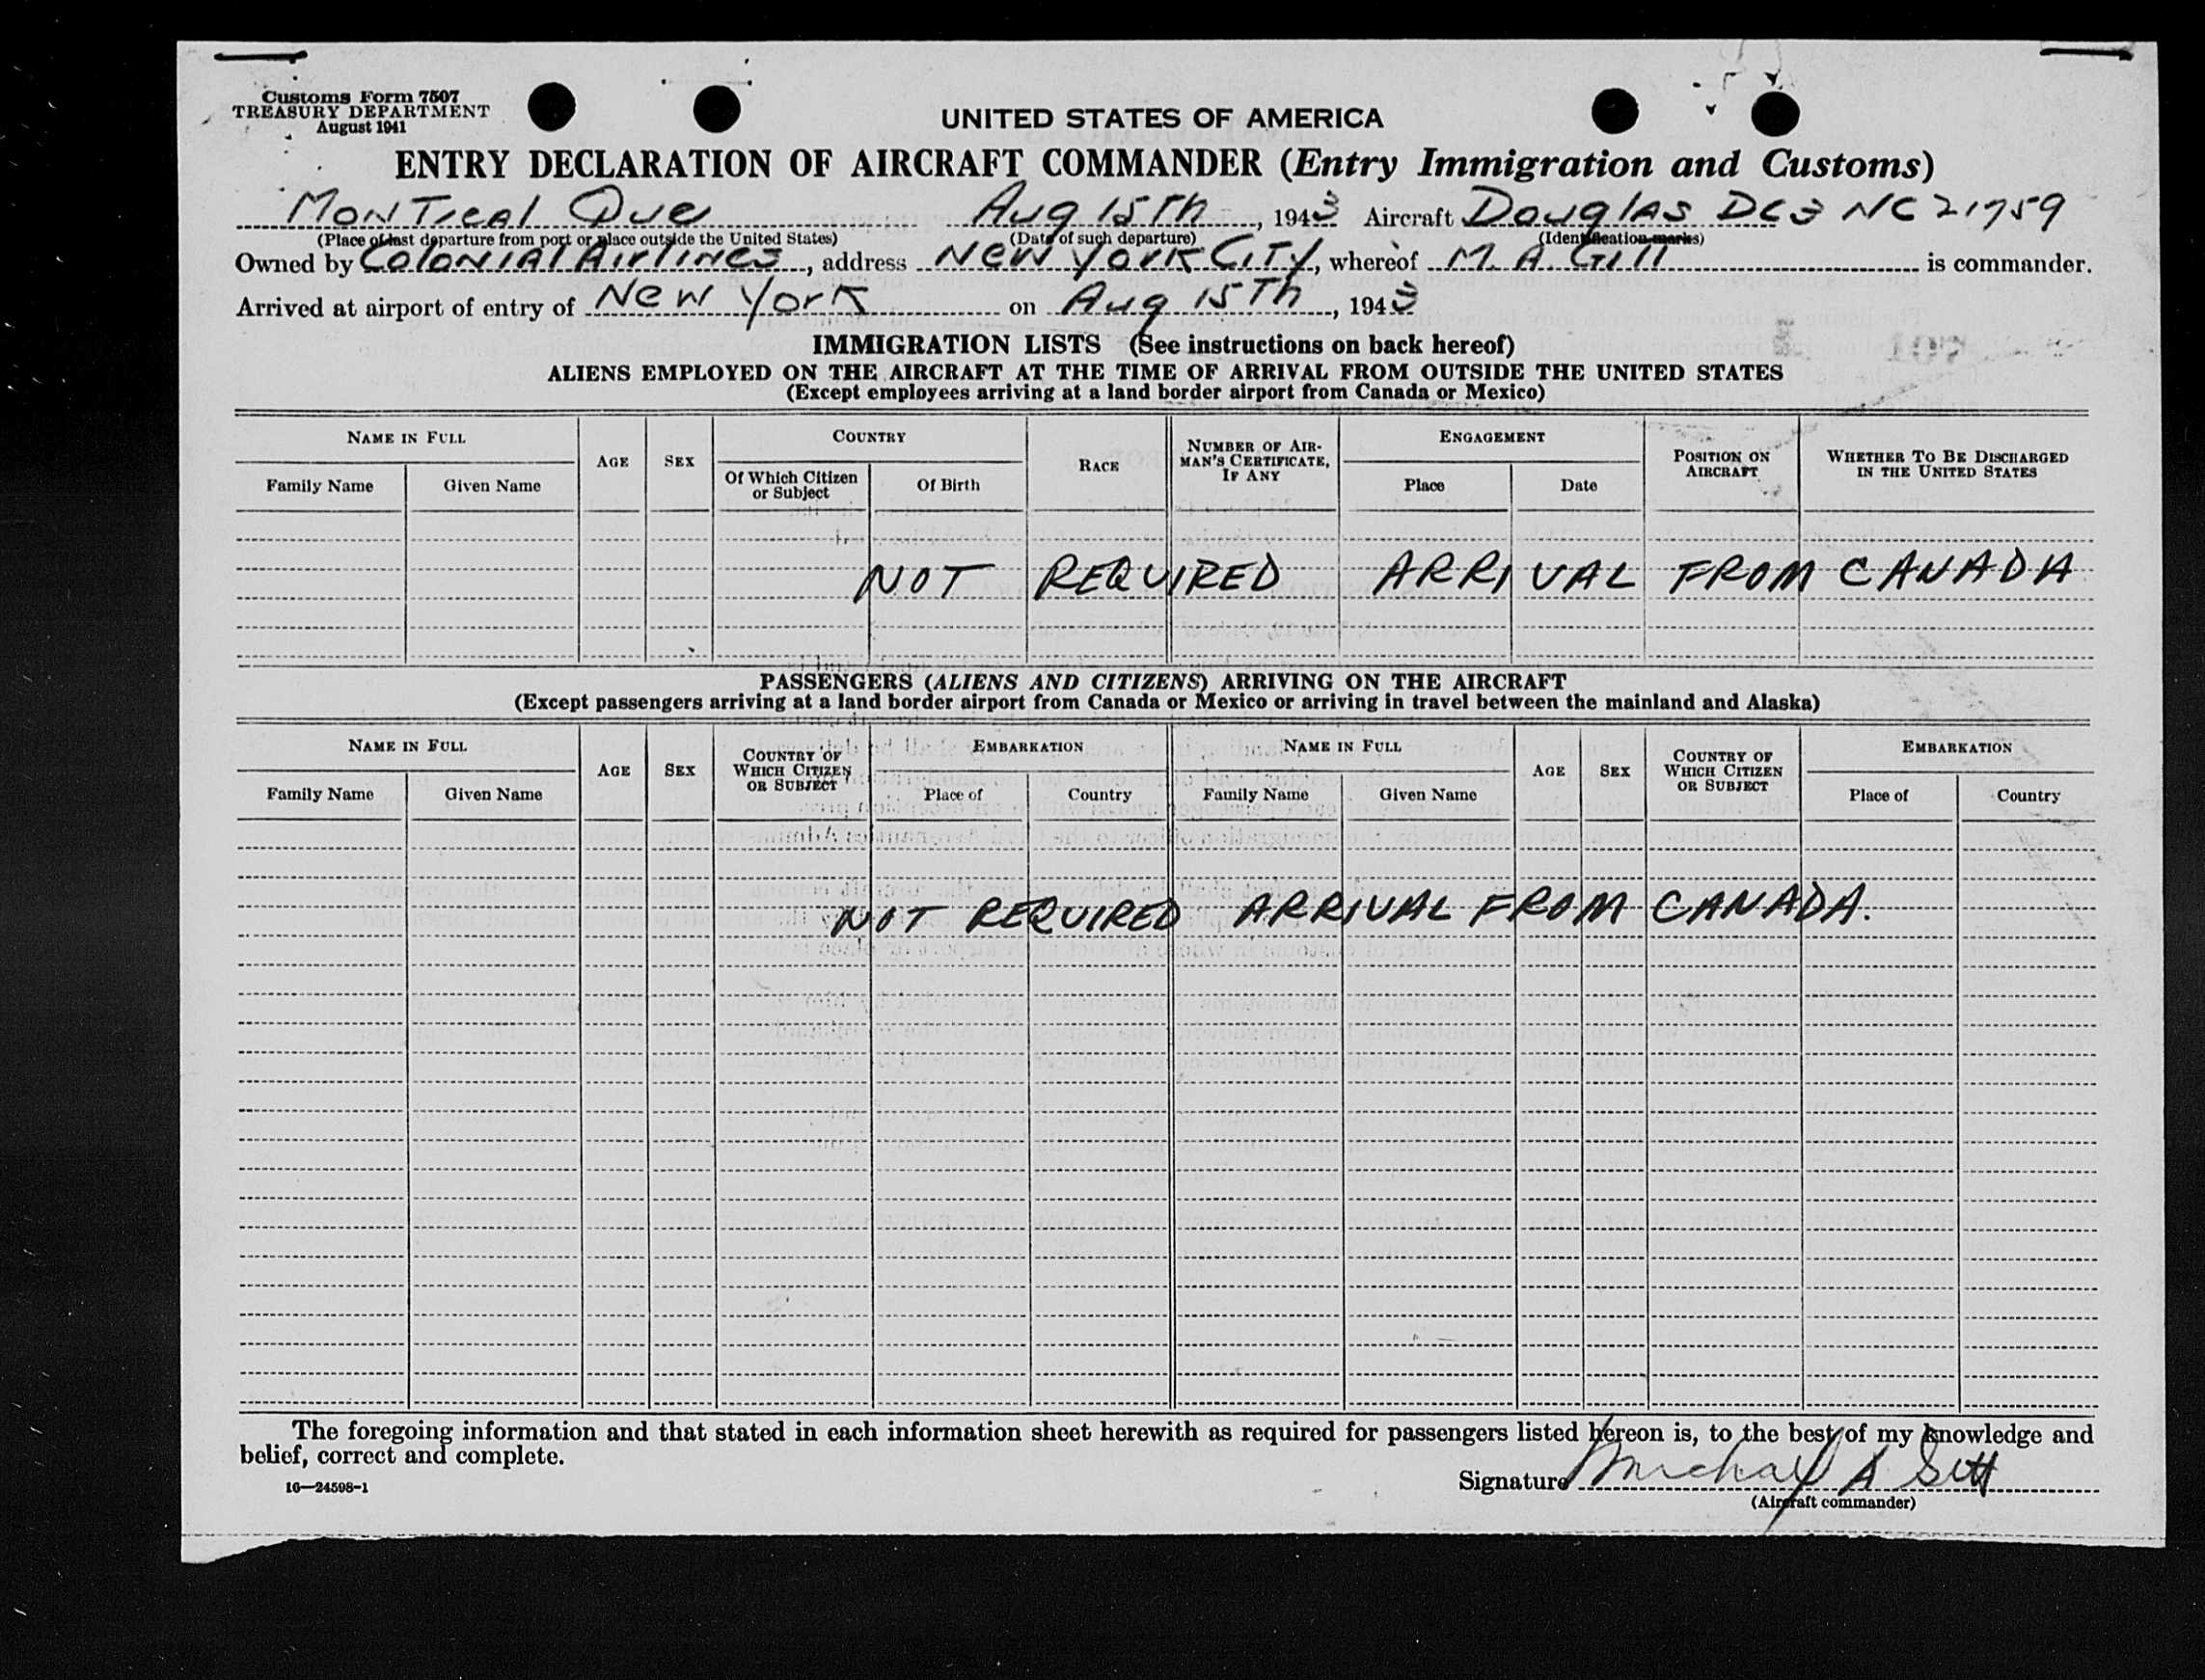 Customs Form 7507
TREASURY DEPARTMENT
August 1941
UNITED STATES OF AMERICA
ENTRY DECLARATION OF AIRCRAFT COMMANDER (Entry Immigration and Customs)
Montreal Que Aug 15Th, 1943 Aircraft Douglas DC3 NC21759
(Place of last departure from port or place outside the United States) (Date of such departure) (Identification marks)
Owned by Colonial Airlines, address New York City, whereof M. A. Gill is commander.
Arrived at airport of entry of New York on Aug 15Th, 1943
IMMIGRATION LISTS (See instructions on back hereof)
ALIENS EMPLOYED ON THE AIRCRAFT AT THE TIME OF ARRIVAL FROM OUTSIDE THE UNITED STATES
(Except employees arriving at a land border airport from Canada or Mexico)
NAME IN FULL
Family Name Given Name
AGE
SEX
COUNTRY
Of Which Citizen or Subject
Of Birth
RACE
NUMBER OF AIR-
MAN'S CERTIFICATE,
IF ANY
ENGAGEMENT
Place Date
POSITION ON
AIRCRAFT
WHETHER TO BE DISCHARGED
IN THE UNITED STATES
NOT REQUIRED ARRIVAL FROM CANADA
PASSENGERS (ALIENS AND CITIZENS) ARRIVING ON THE AIRCRAFT
(Except passengers arriving at a land border airport from Canada or Mexico or arriving in travel between the mainland and Alaska)
NAME IN FULL
Family Name Given Name
AGE
SEX
COUNTRY OF
WHICH CITIZEN
OR SUBJECT
EMBARKATION
Place of Country
NAME IN FULL
Family Name Given Name
AGE
SEX
COUNTRY OF
WHICH CITIZEN
OR SUBJECT
EMBARKATION
Place of Country
NOT REQUIRED ARRIVAL FROM CANADA.
The foregoing information and that stated in each information sheet herewith as required for passengers listed hereon is, to the best of my knowledge and
belief, correct and complete.
16—24598-1
Signature Michael A Gill
(Aircraft commander)